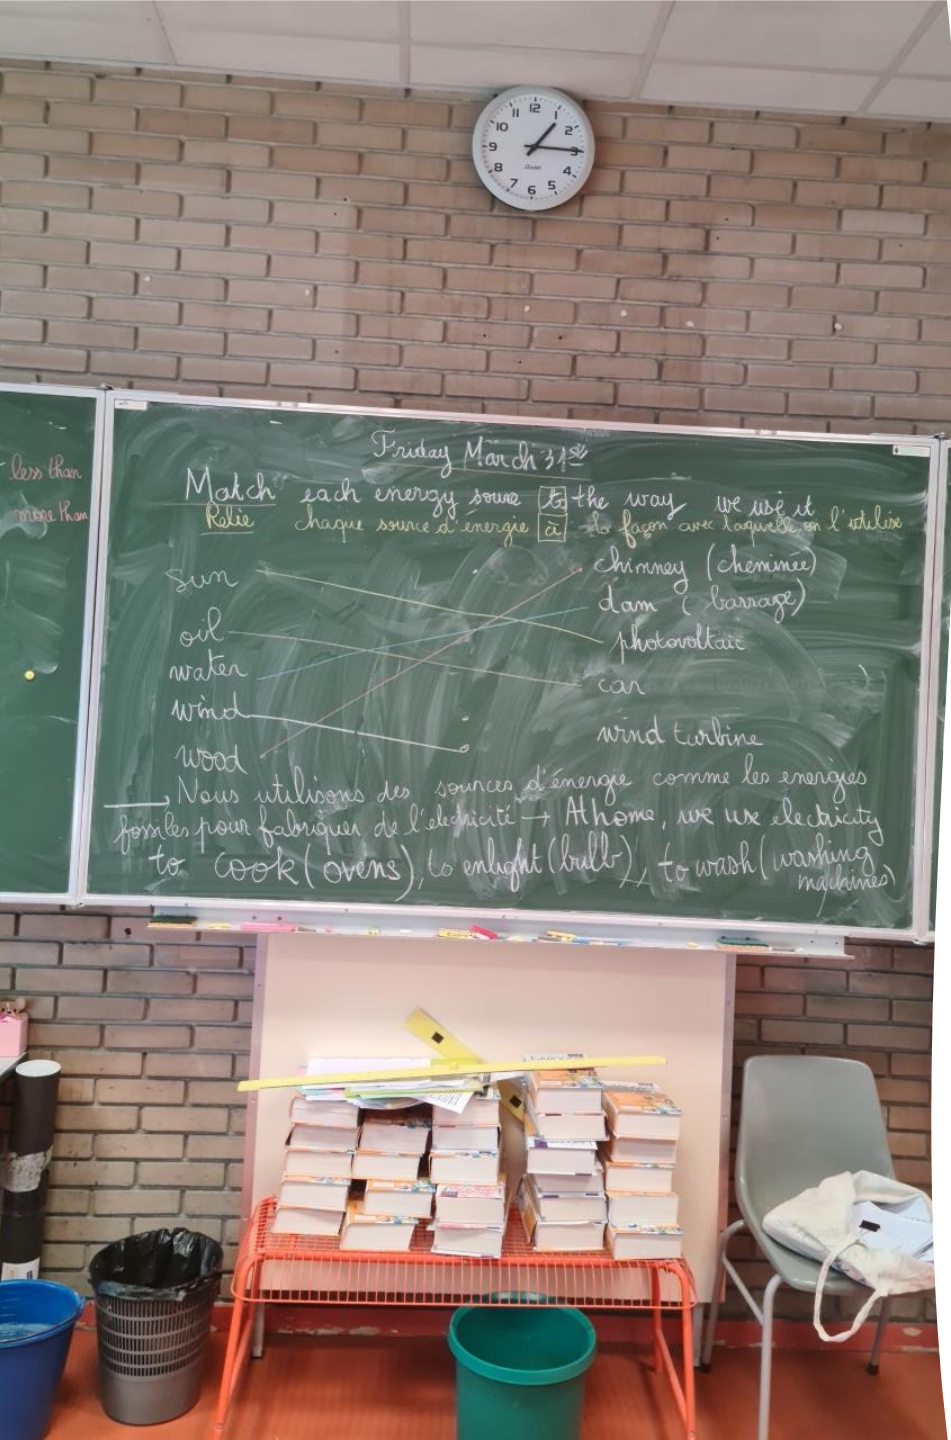 12
1
2
3
4
5
6
7
8
9
10
11
less than
more than
Friday March 31st
Match each energy source to the way we use it
Relie chaque source d'énergie à la façon avec laquelle on l'utilise
sun
chimney (cheminée)
dam (barrage)
oil
photovoltaic
water
car )
wind
wind turbine
wood
Nous utilisons des sources d'énergie comme les energies
fossiles pour fabriquer de l'électricité → At home, we use electricity
to cook (ovens), to enlight (bulb), to wash (washing
machines)